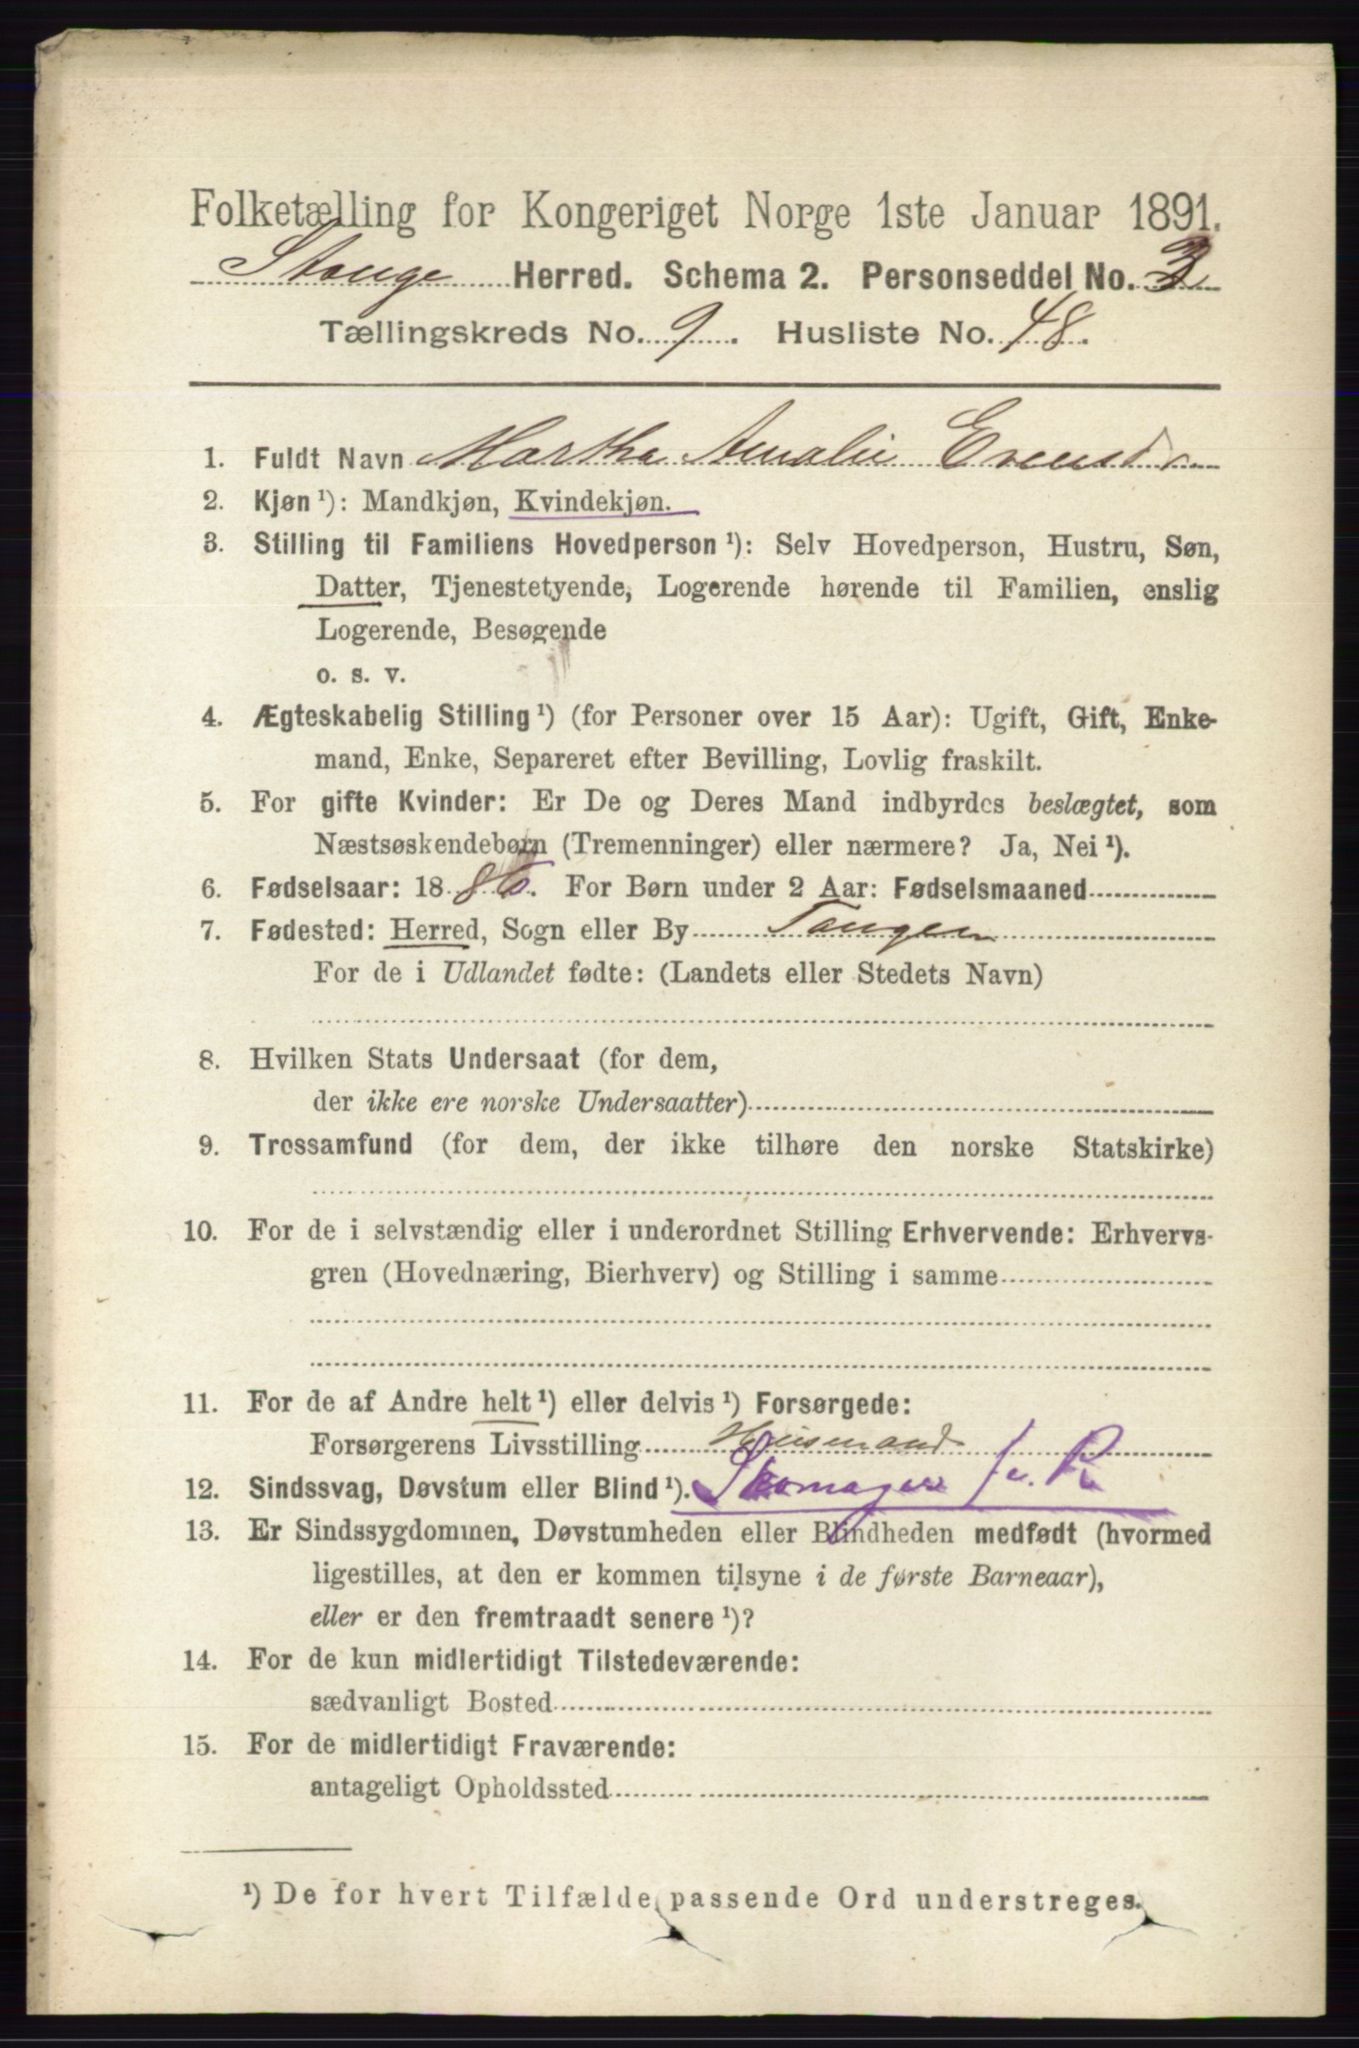 Folketælling for Kongeriget Norge 1ste Januar 1891.
Stange Herred. Schema 2. Personseddel No. 3
Tællingskreds No. 9. Husliste No. 48.
1. Fuldt Navn Martha Amalie Evensd
2. Kjøn ¹): Mandkjøn, Kvindekjøn.
3. Stilling til Familiens Hovedperson ¹): Selv Hovedperson, Hustru, Søn,
Datter, Tjenestetyende, Logerende hørende til Familien, enslig
Logerende, Besøgende
o. s. v.
4. Ægteskabelig Stilling ¹) (for Personer over 15 Aar): Ugift, Gift, Enke-
mand, Enke, Separeret efter Bevilling, Lovlig fraskilt.
5. For gifte Kvinder: Er De og Deres Mand indbyrdes beslægtet, som
Næstsøskendebørn (Tremenninger) eller nærmere? Ja, Nei ¹).
6. Fødselsaar: 18 86. For Børn under 2 Aar: Fødselsmaaned
7. Fødested: Herred, Sogn eller By Tangen
For de i Udlandet fødte: (Landets eller Stedets Navn)
8. Hvilken Stats Undersaat (for dem,
der ikke ere norske Undersaatter)
9. Trossamfund (for dem, der ikke tilhøre den norske Statskirke)
10. For de i selvstændig eller i underordnet Stilling Erhvervende: Erhvervs-
gren (Hovednæring, Bierhverv) og Stilling i samme
11. For de af Andre helt ¹) eller delvis ¹) Forsørgede:
Forsørgerens Livsstilling Husmand
12. Sindssvag, Døvstum eller Blind ¹). Skomager f. e. R.
13. Er Sindssygdommen, Døvstumheden eller Blindheden medfødt (hvormed
ligestilles, at den er kommen tilsyne i de første Barneaar),
eller er den fremtraadt senere ¹)?
14. For de kun midlertidigt Tilstedeværende:
sædvanligt Bosted
15. For de midlertidigt Fraværende:
antageligt Opholdssted
¹) De for hvert Tilfælde passende Ord understreges.